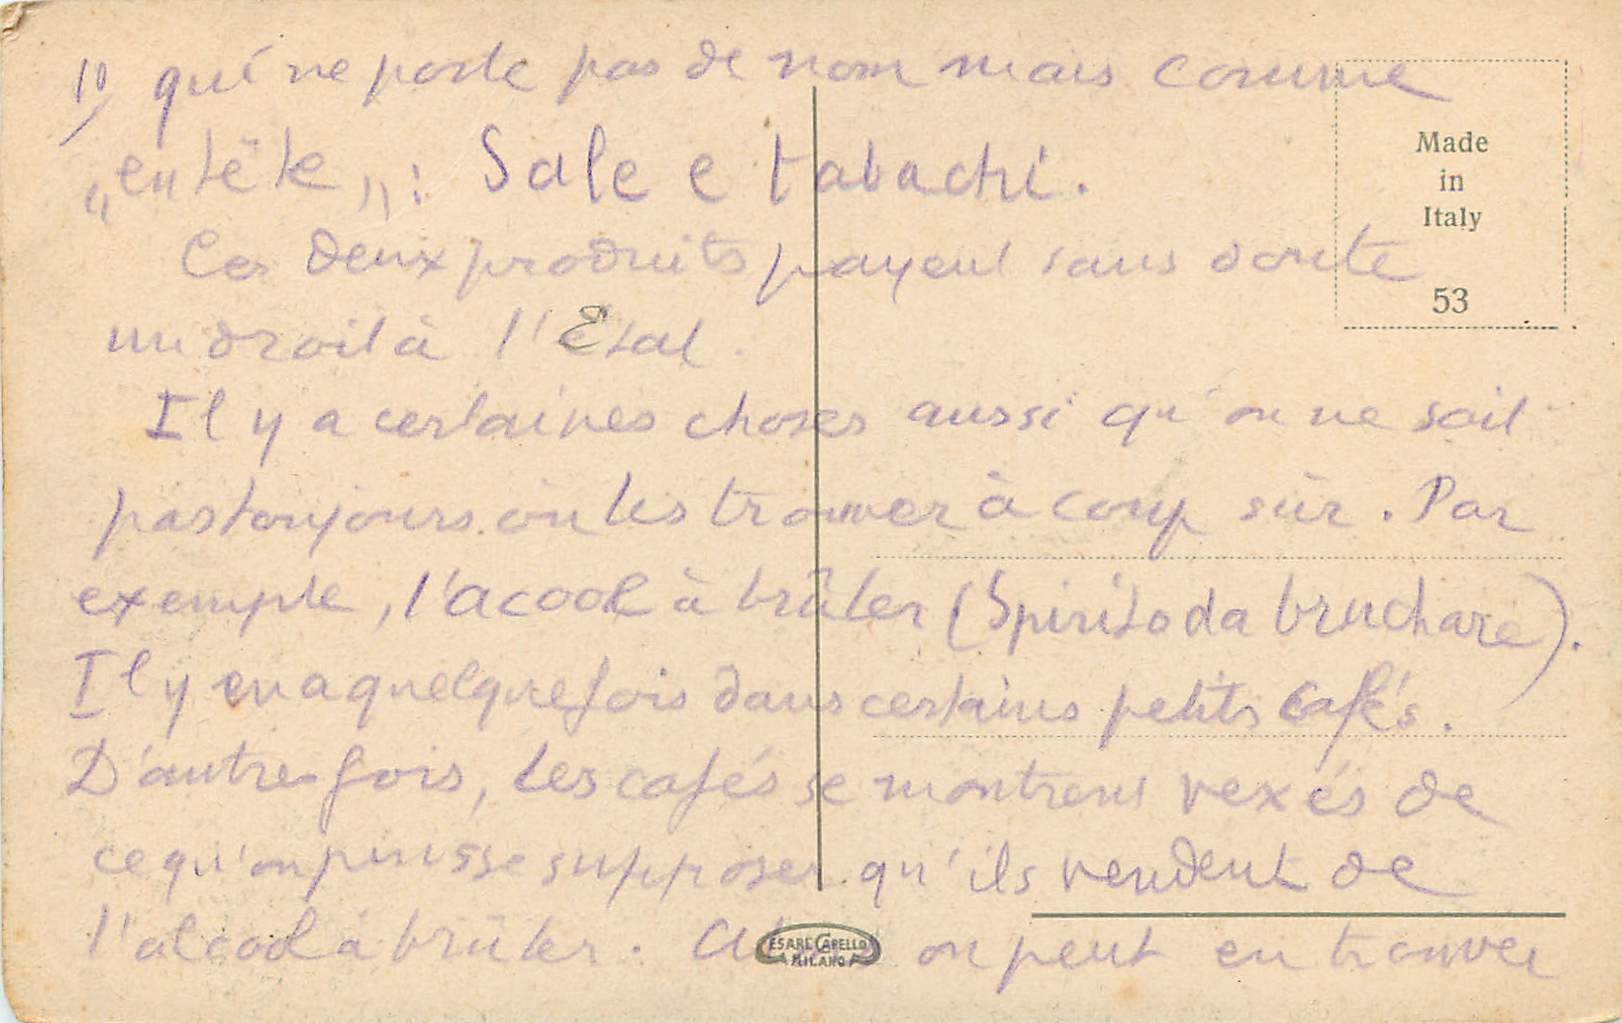 10) qui ne porte pas de nom mais comme
„entête„ : Sale e tabachi.
Ces deux produits payent sans doute
un droit à l'Etat.
Il y a certaines choses aussi qu'on ne sait
pas toujours où les trouver à coup sûr. Par
exemple, l'acool à brûler (Spirito da bruchare).
Il y en a quelquefois dans certains petits cafés.
D'autres fois, les cafés se montrent vexés de
ce qu'on puisse supposer qu'ils vendent de
l'alcool à brûler. on peut en trouver
Made
in
Italy
53
CESARE CAPELLO
MILANO